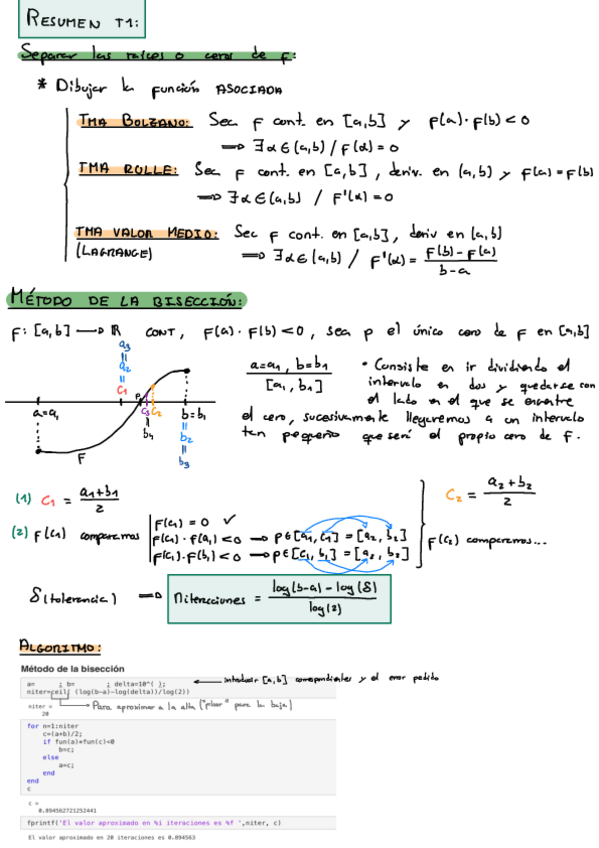 RESUMEN T1:
Separar las raíces o ceros de f:
* Dibujar la función ASOCIADA
TMA BOLZANO: Sea f cont. en [a,b] y f(a)·f(b)<0
⟹ ∃α∈(a,b) / f(α)=0
TMA ROLLE: Sea f cont. en [a,b], deriv. en (a,b) y f(a)=f(b)
⟹ ∃α∈(a,b) / f'(α)=0
TMA VALOR MEDIO: Sea f cont. en [a,b], deriv en (a,b)
(LAGRANGE) ⟹ ∃α∈(a,b) / f'(α)= f(b)-f(a) / b-a
MÉTODO DE LA BISECCIÓN:
f: [a,b] ⟶ ℝ CONT, f(a)·f(b)<0, sea p el único cero de f en [a,b]
a₃
=
a₂
=
c₁
a=a₁
p
c₃ c₂
=
b₄
b=b₁
=
b₂
=
b₃
f
a=a₁, b=b₁
[a₁, b₁]
• Consiste en ir dividiendo el
intervalo en dos y quedarse con
el lado en el que se encuentre
el cero, sucesivamente llegaremos a un intervalo
tan pequeño que será el propio cero de f.
(1) c₁ = a₁+b₁ / 2
(2) f(c₁) comparamos
f(c₁) = 0 ✓
f(c₁)·f(a₁)<0 ⟶ p∈[a₁,c₁] = [a₂,b₂]
f(c₁)·f(b₁)<0 ⟶ p∈[c₁,b₁] = [a₂,b₂]
c₂ = a₂+b₂ / 2
f(c₂) comparamos...
δ(tolerancia) ⟹ n iteraciones = log(b-a) - log(δ) / log(2)
ALGORITMO:
Método de la bisección
a= ; b= ; delta=10^( ); ⟵ introducir [a,b] correspondientes y el error pedido
niter=ceil( (log(b-a)-log(delta))/log(2))
Para aproximar a la alta ("floor" para la baja)
niter =
20
for n=1:niter
c=(a+b)/2;
if fun(a)*fun(c)<0
b=c;
else
a=c;
end
end
c
c =
0.894562721252441
fprintf('El valor aproximado en %i iteraciones es %f ',niter, c)
El valor aproximado en 20 iteraciones es 0.894563